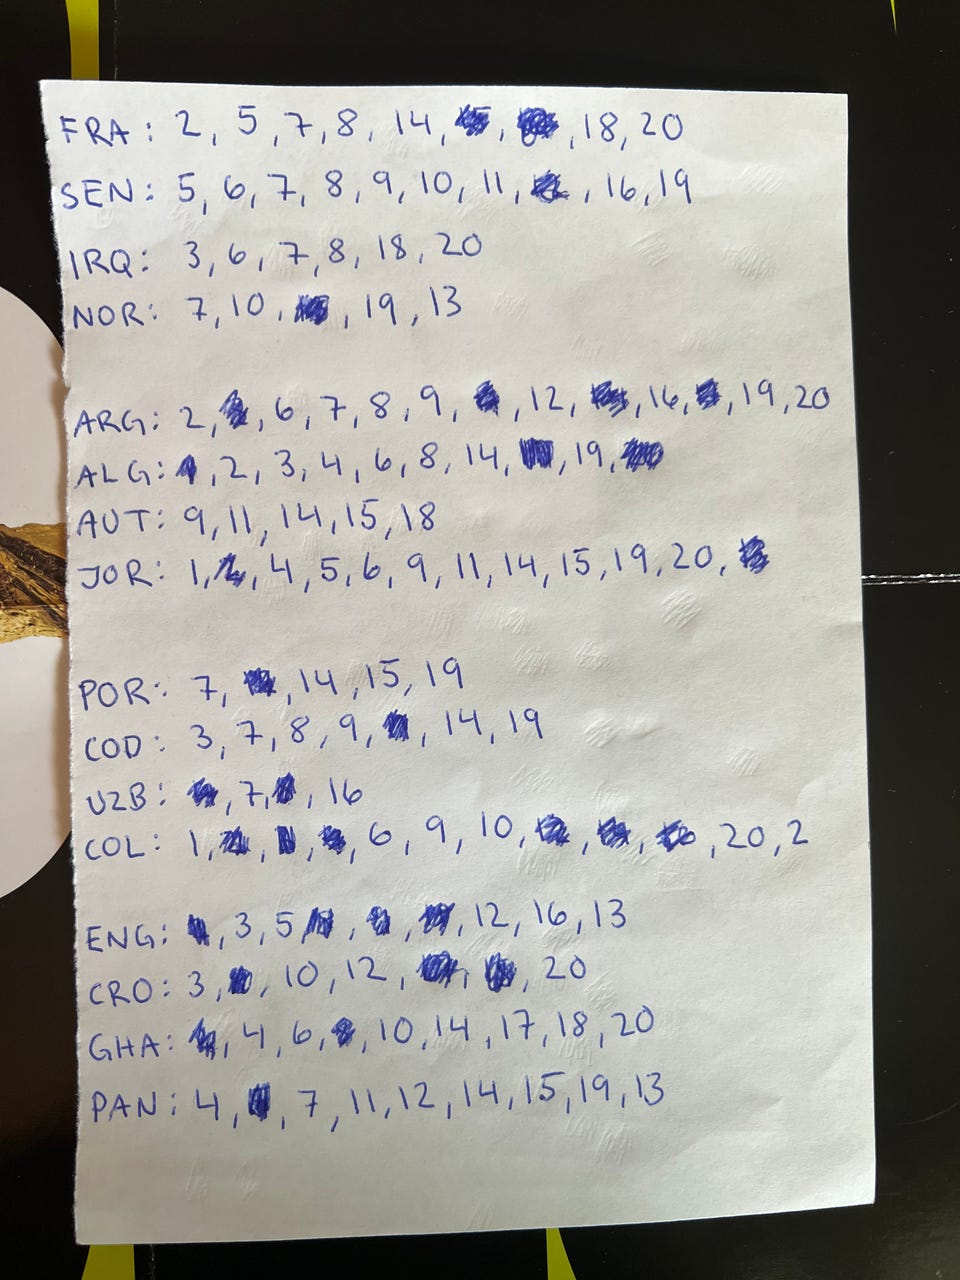 FRA: 2, 5, 7, 8, 14, , , 18, 20
SEN: 5, 6, 7, 8, 9, 10, 11, , 16, 19
IRQ: 3, 6, 7, 8, 18, 20
NOR: 7, 10, , 19, 13
ARG: 2, , 6, 7, 8, 9, , 12, , 16, , 19, 20
ALG: , 2, 3, 4, 6, 8, 14, , 19,
AUT: 9, 11, 14, 15, 18
JOR: 1, , 4, 5, 6, 9, 11, 14, 15, 19, 20,
POR: 7, , 14, 15, 19
COD: 3, 7, 8, 9, , 14, 19
UZB: , 7, , 16
COL: 1, , , , 6, 9, 10, , , , 20, 2
ENG: , 3, 5 , , , 12, 16, 13
CRO: 3, , 10, 12, , , 20
GHA: , 4, 6, , 10, 14, 17, 18, 20
PAN: 4, , 7, 11, 12, 14, 15, 19, 13